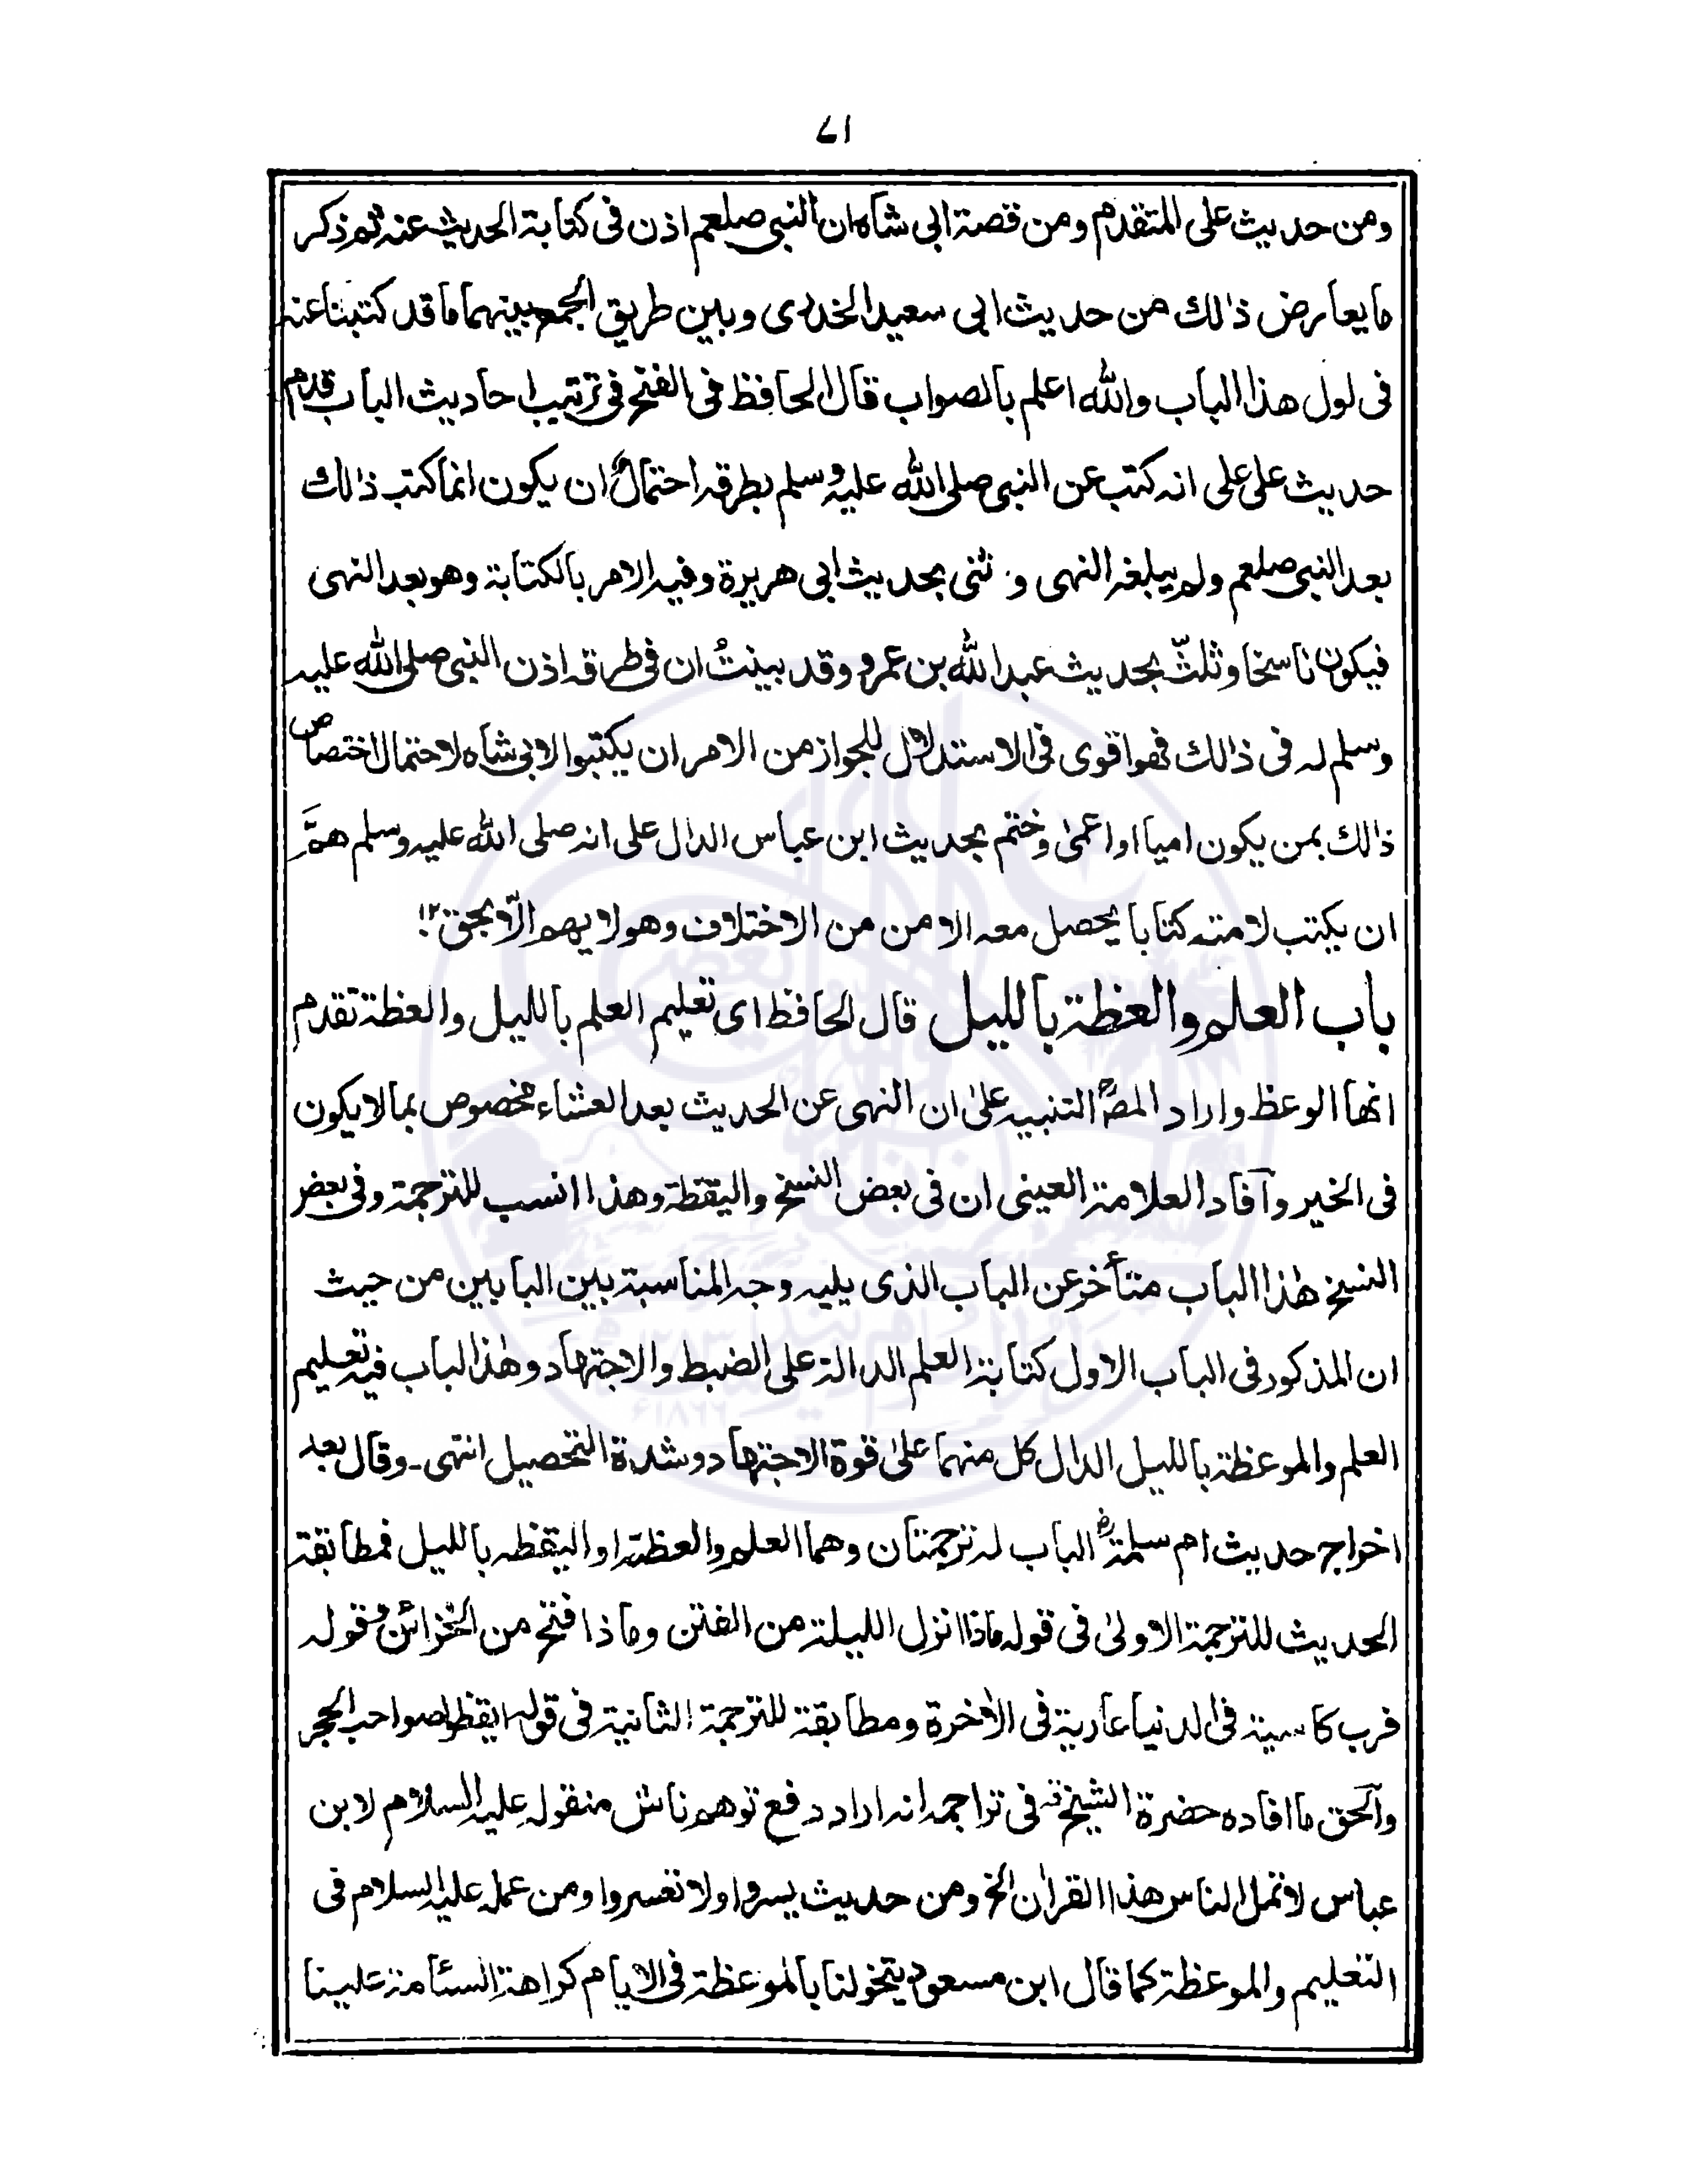 ۷۱
ومن حديث على المتقدم ومن قصة ابى شاه ان النبى صلعم اذن فى كتابة الحديث عنه ثم ذكر
ما يعارض ذالك من حديث ابى سعيد الخدرى وبين طريق الجمع بينهما ما قد كتبنا عنه
فى لول هذا الباب والله اعلم بالصواب قال الحافظ فى الفتح فى ترتيب احاديث الباب قدم
حديث على على انه كتب عن النبى صلى الله عليه وسلم بطرقه احتمال ان يكون انما كتب ذالك
بعد النبى صلعم ولم يبلغه النهى و ثنى بحديث ابى هريرة وفيه الامر بالكتابة وهو بعد النهى
فيكون ناسخا وثلثّ بحديث عبد الله بن عمرو وقد بينتُ ان فى طرقه اذن النبى صلى الله عليه
وسلم له فى ذالك فهو اقوى فى الاستدلال للجواز من الامر ان يكتبوا لابى شاه لاحتمال اختصاص
ذالك بمن يكون اميا او اعمىٰ وختم بحديث ابن عباس الدال على انه صلى الله عليه وسلم همَّ
ان يكتب لامته كتابا يحصل معه الامن من الاختلاف وهو لا يهم الّا بحق ۱۲
باب العلم والعظة بالليل قال الحافظ اى تعليم العلم بالليل والعظة تقدم
انها الوعظ واراد المصؒ التنبيه علىٰ ان النهى عن الحديث بعد العشاء مخصوص بما لا يكون
فى الخير وآفاد العلامة العينى ان فى بعض النسخ واليقظة وهذا انسب للترجمة وفى بعض
النسخ هٰذا الباب متأخر عن الباب الذى يليه وجه المناسبة بين البابين من حيث
ان المذكور فى الباب الاول كتابة العلم الدالة على الضبط والاجتهاد وهٰذا الباب فيه تعليم
العلم والموعظة بالليل الدال كل منهما علىٰ قوة الاجتهاد وشدة التحصيل انتهى ـ وقال بعد
اخراج حديث ام سلمةؓ الباب له ترجمتان وهما العلم والعظة او اليقظه بالليل فمطابقة
الحديث للترجمة الاولىٰ فى قوله ماذا انزل الليلة من الفتن وماذا فتح من الخزائن وقوله
فرب كاسية فى الدنيا عارية فى الاٰخرة ومطابقة للترجمة الثانية فى قوله ايقظوا صواحب الحجر
وآلحق ما افاده حضرة الشيخ فى تراجمه انه اراد دفع توهم ناش من قوله عليه السلام لابن
عباس لا تمل الناس هذا القراٰن الخ ومن حديث يسروا ولا تعسروا ومن عمله عليه السلام فى
التعليم والموعظة كما قال ابن مسعود يتخولنا بالموعظة فى الايام كراهة السئامة علينا